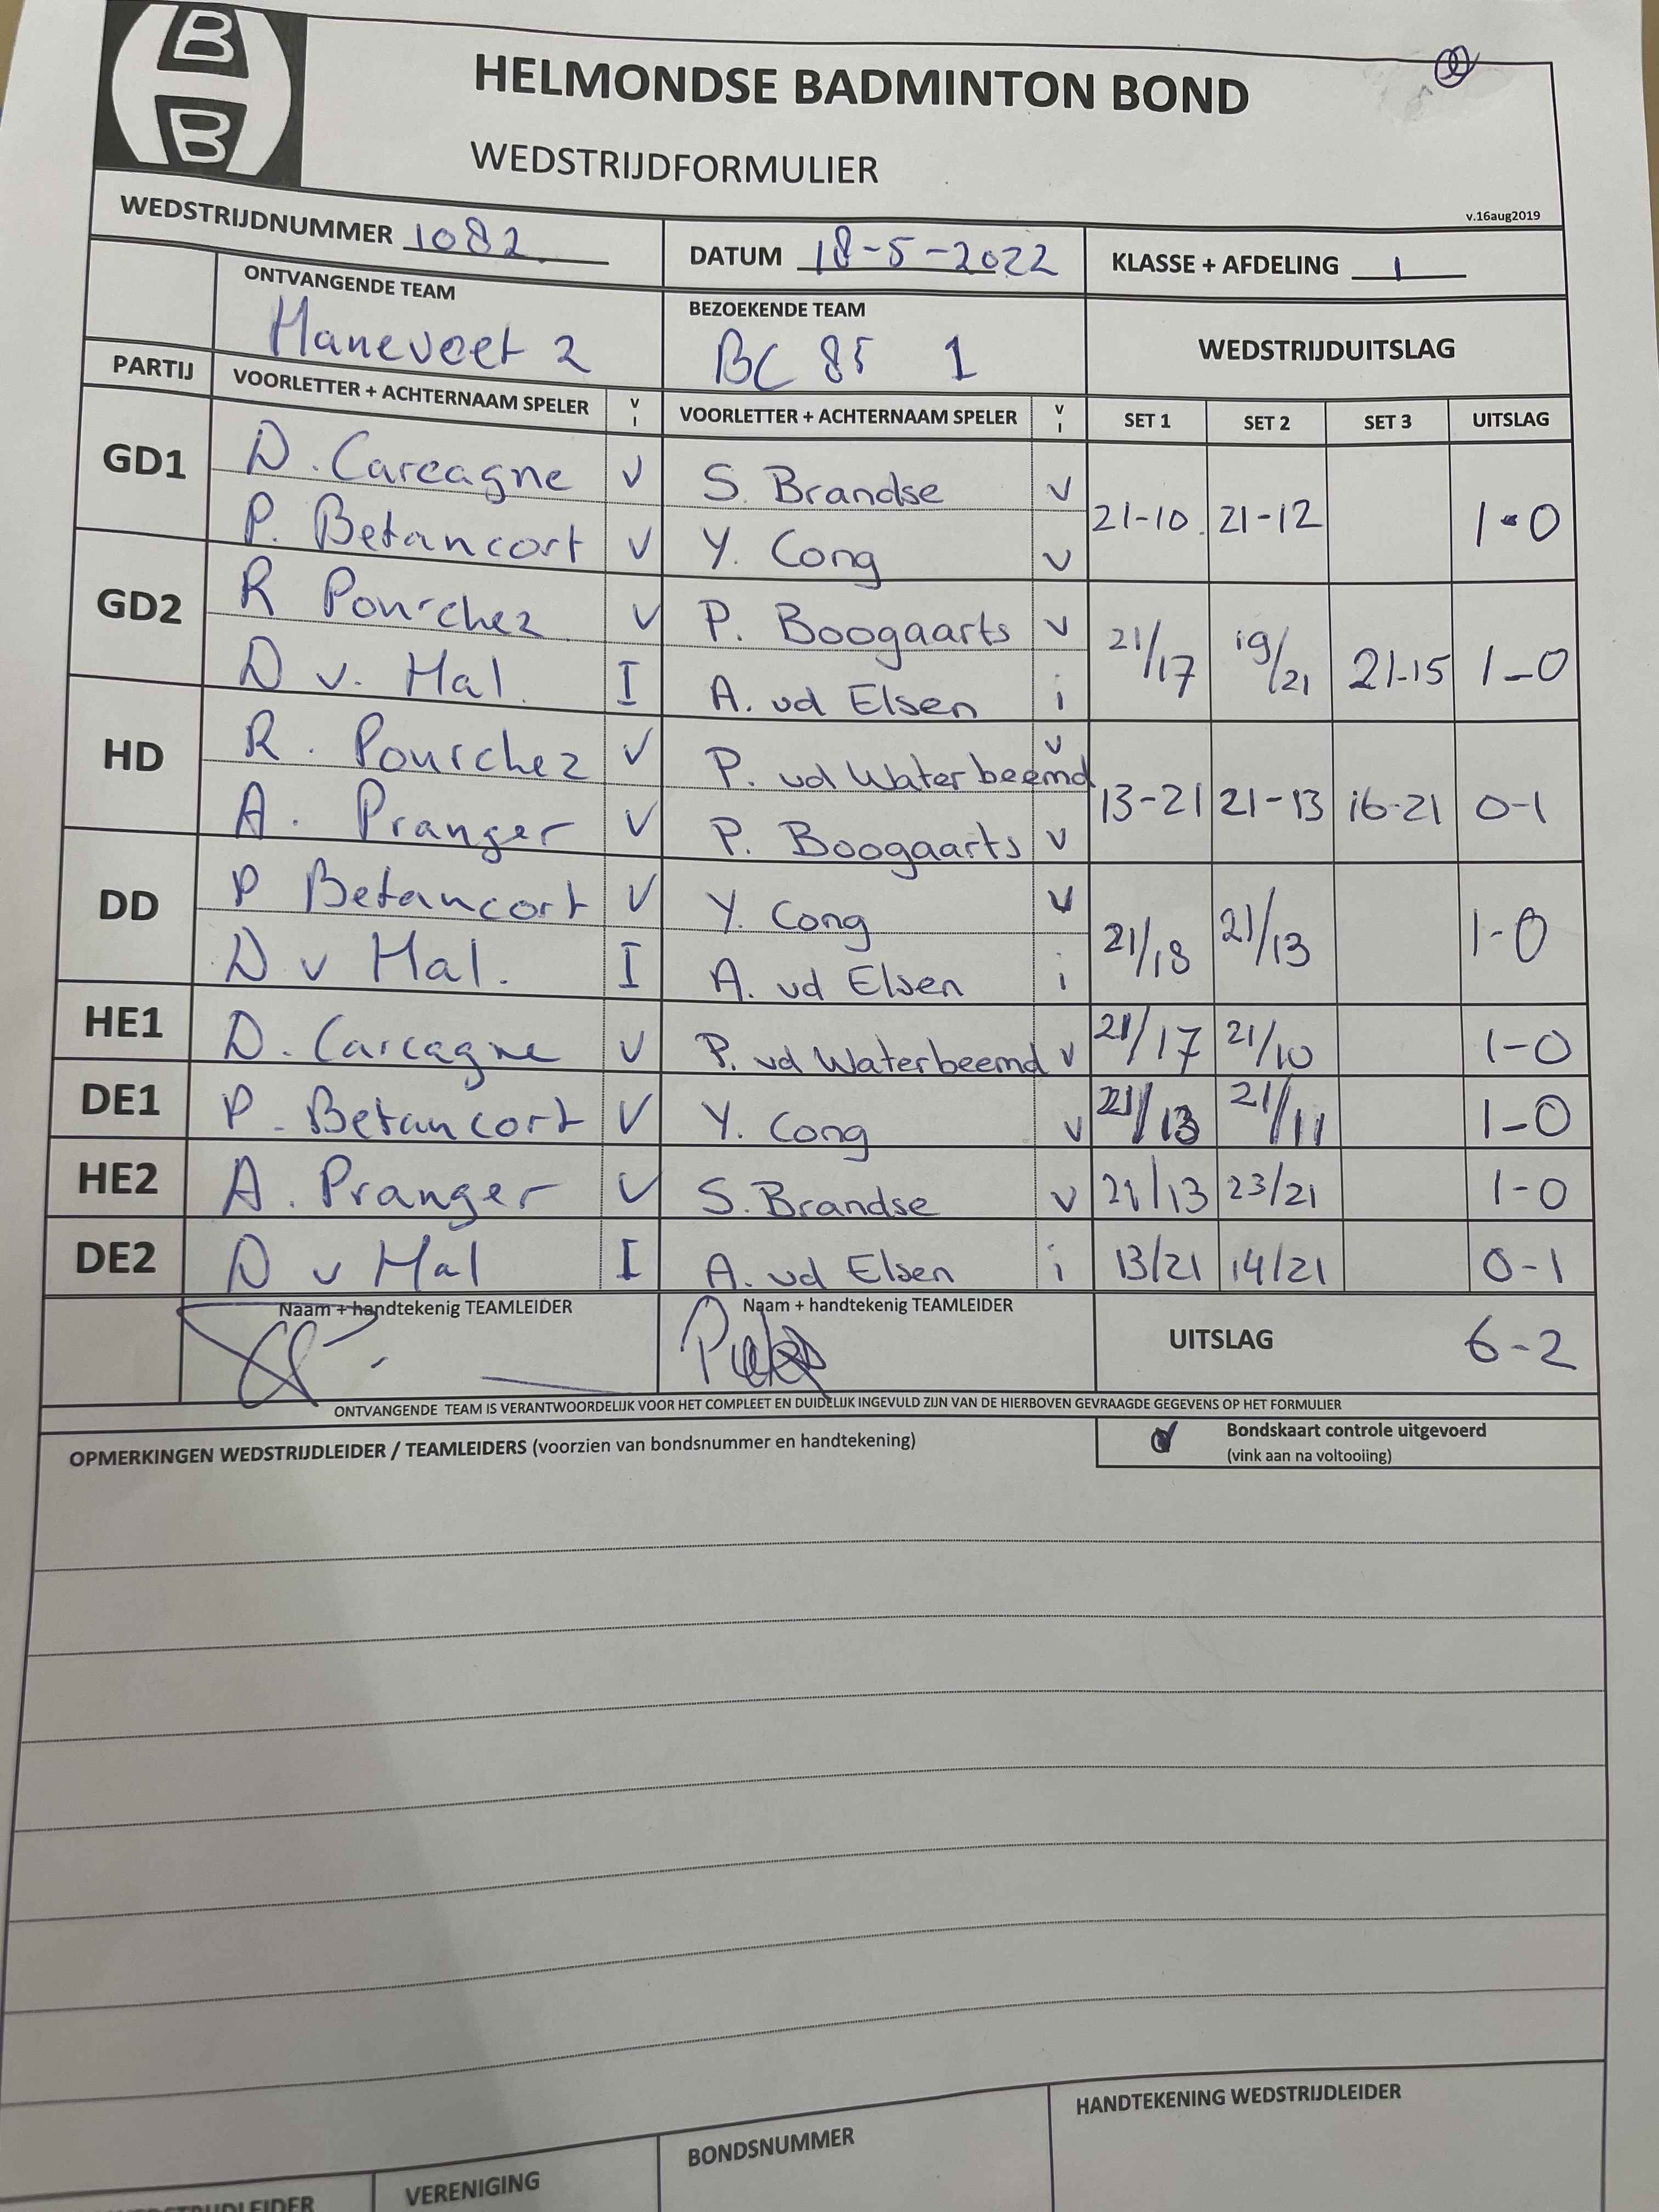 B
B
HELMONDSE BADMINTON BOND
WEDSTRIJDFORMULIER
v.16aug2019
WEDSTRIJDNUMMER 1082 DATUM 18-5-2022 KLASSE + AFDELING 1
ONTVANGENDE TEAM BEZOEKENDE TEAM WEDSTRIJDUITSLAG
Maneveet 2 BC 85 1
PARTIJ VOORLETTER + ACHTERNAAM SPELER V I VOORLETTER + ACHTERNAAM SPELER V I SET 1 SET 2 SET 3 UITSLAG
GD1 D. Carcagne V S. Brandse V 21-10 21-12 1-0
P. Betancort V Y. Cong V
GD2 R Pourchez V P. Boogaarts V 21/17 19/21 21-15 1-0
D v. Mal. I A. vd Elsen i
HD R. Pourchez V P. vd Waterbeemd V 13-21 21-13 16-21 0-1
A. Pranger V P. Boogaarts V
DD P Betancort V Y. Cong V 21/18 21/13 1-0
D v Mal. I A. vd Elsen i
HE1 D. Carcagne V P. vd Waterbeemd V 21/17 21/10 1-0
DE1 P. Betancort V Y. Cong V 21/13 21/11 1-0
HE2 A. Pranger V S. Brandse V 21/13 23/21 1-0
DE2 D v Mal I A. vd Elsen i 13/21 14/21 0-1
Naam + handtekenig TEAMLEIDER Naam + handtekenig TEAMLEIDER UITSLAG 6-2
ONTVANGENDE TEAM IS VERANTWOORDELIJK VOOR HET COMPLEET EN DUIDELIJK INGEVULD ZIJN VAN DE HIERBOVEN GEVRAAGDE GEGEVENS OP HET FORMULIER
OPMERKINGEN WEDSTRIJDLEIDER / TEAMLEIDERS (voorzien van bondsnummer en handtekening) Bondskaart controle uitgevoerd
(vink aan na voltooiing)
VERENIGING BONDSNUMMER HANDTEKENING WEDSTRIJDLEIDER